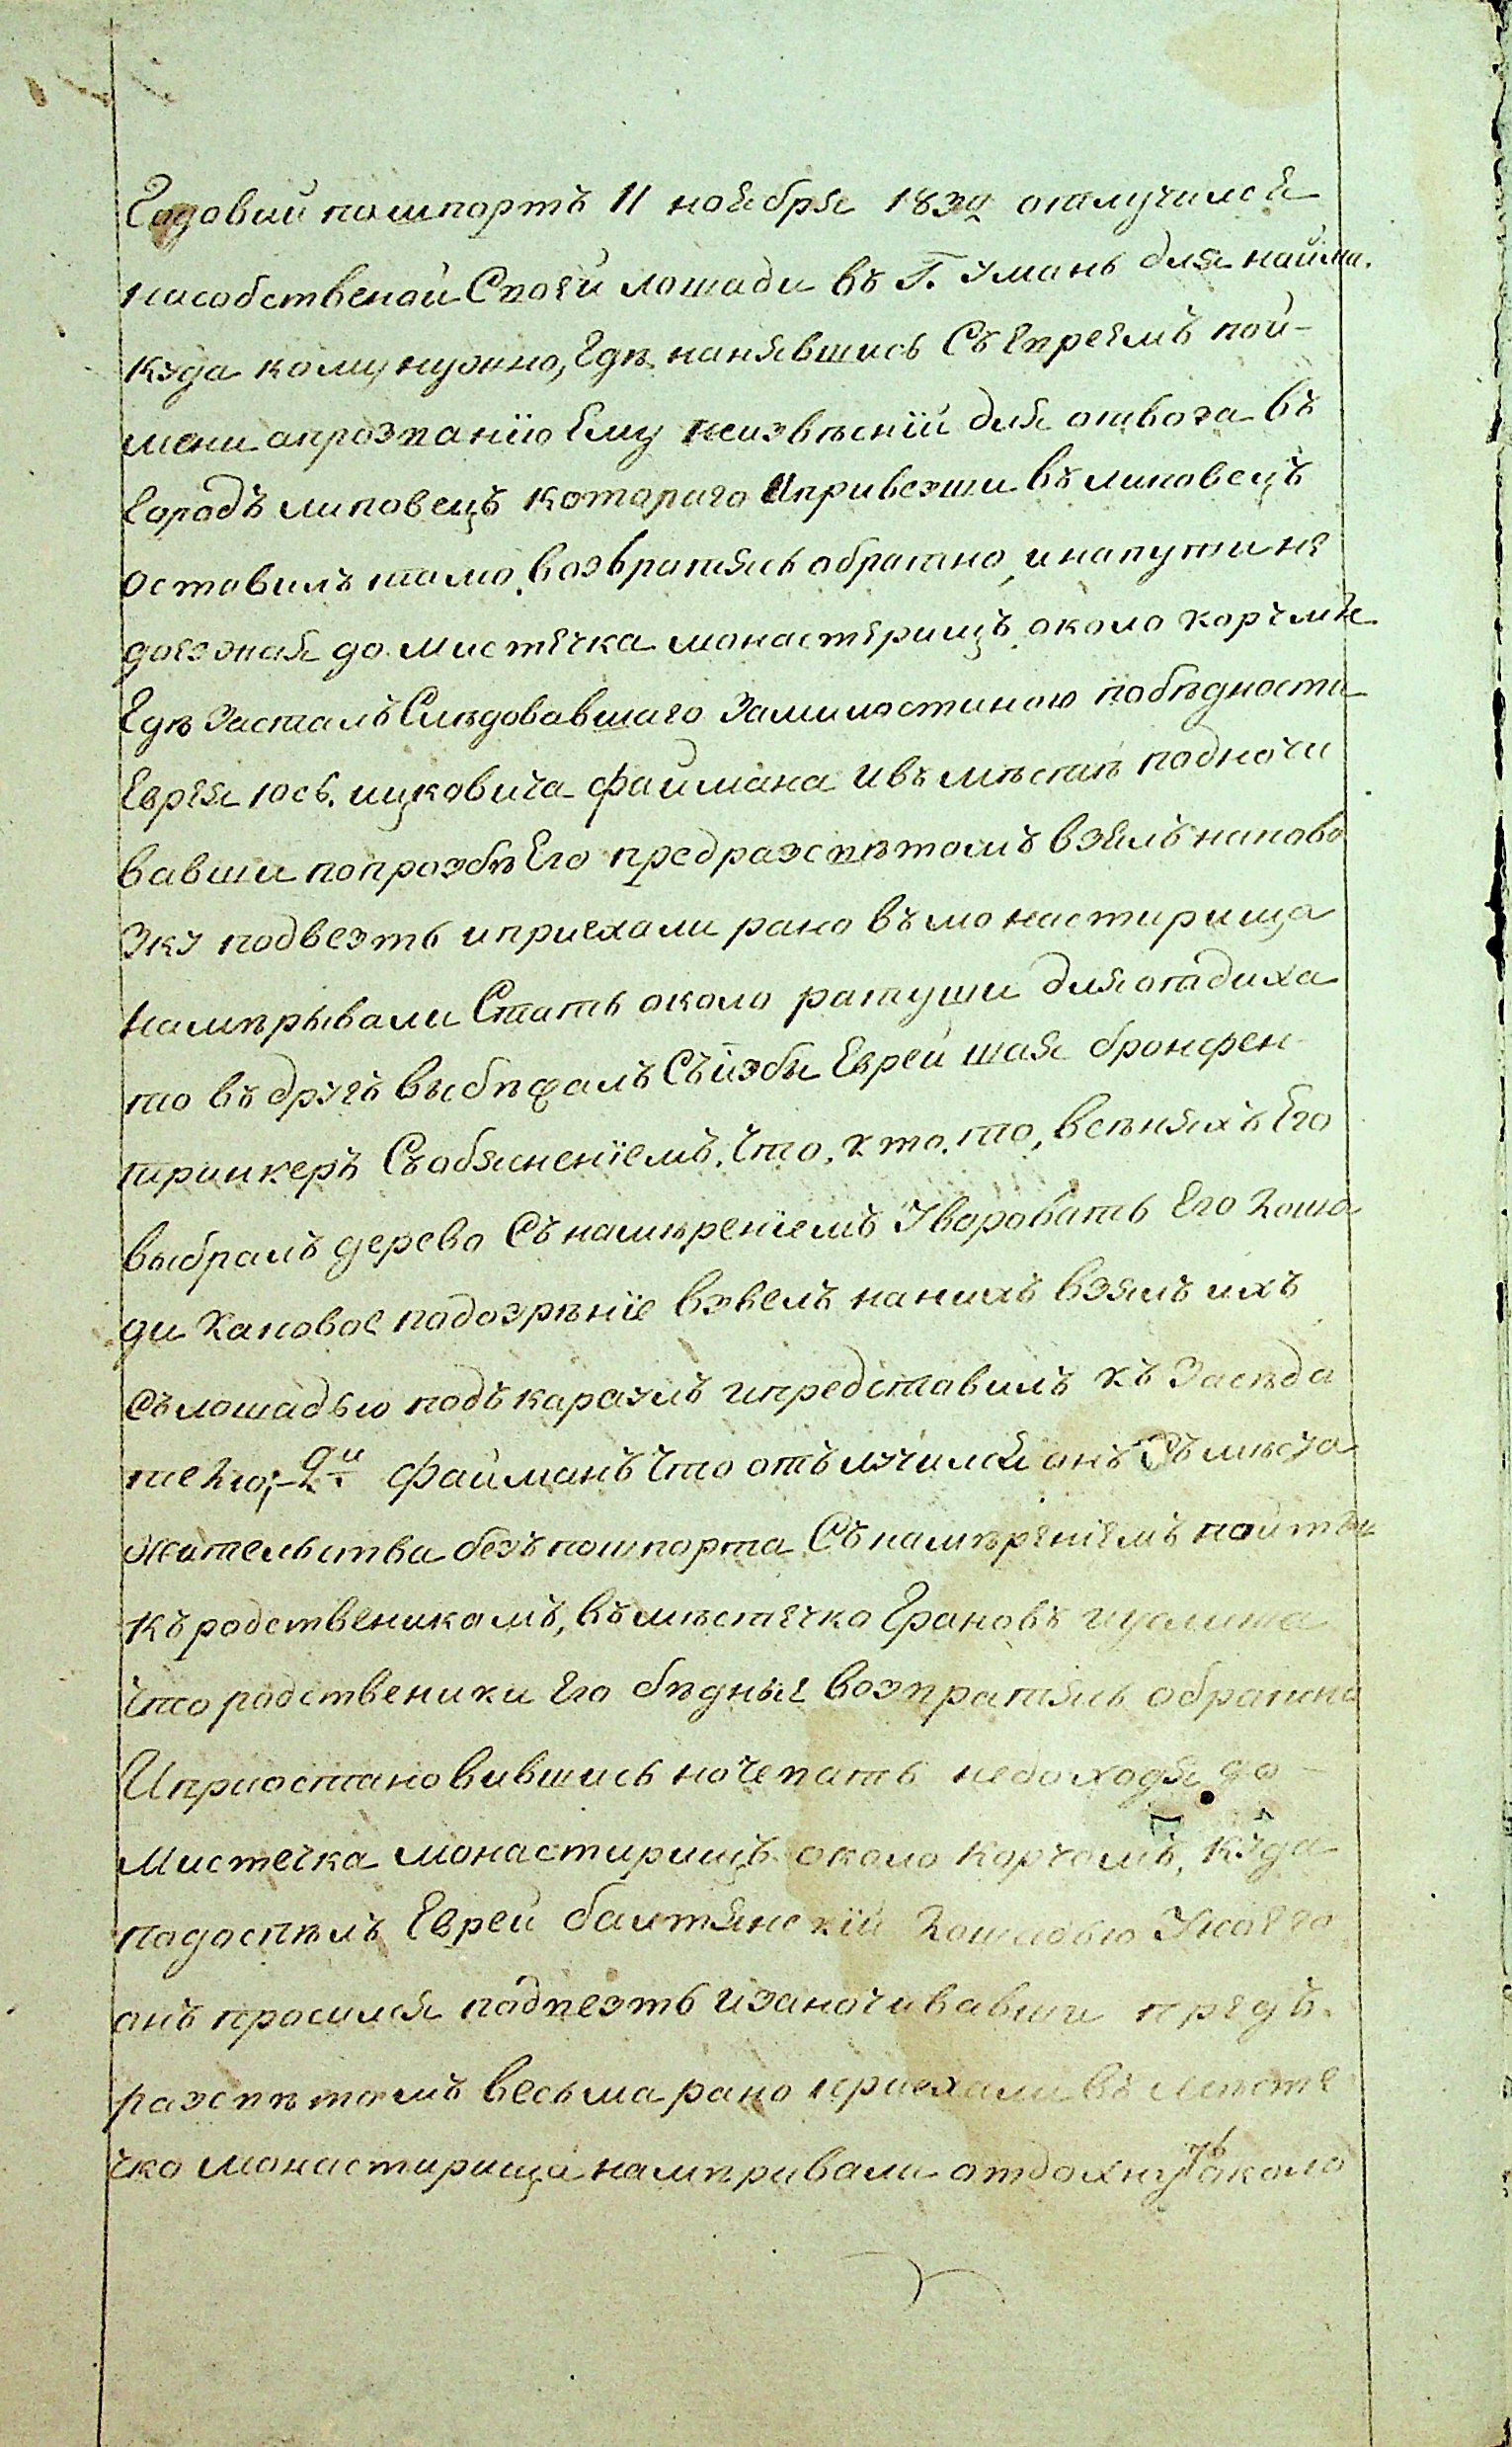 Годовий пашпортъ 11 ноября 1839 отлучился
насобственой Своей лошади въ Г. Умань для найма.
куда кому нужно, Где нанявшись Съ Евреемъ пои-
мени апрозванию Ему неизвѣсній для отвоза въ
Городъ липовецъ котораго Ипривезши въ липовецъ
оставилъ тамо, возвратясь обратно, инапути не
доезжая до мистечка монастерищъ, около корчмы
Гдѣ Засталъ Слѣдовавшаго Замилостиною побѣдности
Еврея юсь. ицковича файмана ивъмѣстѣ подночи
вавши попрозбѣ Его предразсвѣтомъ взялъ наново
зку подвезть иприехали рано въ монастирища
намѣрывали Стать около ратуши для отдиха
то въдругъ выбѣгалъ Съ избы Еврей шая бронфен
тринкеръ Собясненіемъ, Что, кто, то, въсѣняхъ Его
выбралъ дерево Съ намѣреніемъ Уворовать Его Лоша
ди Каковое подозрѣніе взвелъ на нихъ взялъ ихъ
Съ лошадью подъ караулъ ипредставилъ къ Засѣда
телю; 2й файманъ Что отълучился онъ Съ мѣста
жительства безъ пошпорта Съ намѣреніемъ пойты
къ родственикомъ, въ мѣстечко Грановъ иуслиша
Что родственики Его бѣдные возвратясь обратно
Иприостановившись ночевать недоходя до
Мистечка монастирищъ около корчомъ, куда
подоспѣлъ Еврей балтянскій Лошадью Укоего
онъ просился подвезть изаночивавши предъ
разсвѣтомъ весьма рано приехали въ мѣсте
чко монастирища намѣривали отдохнуть около